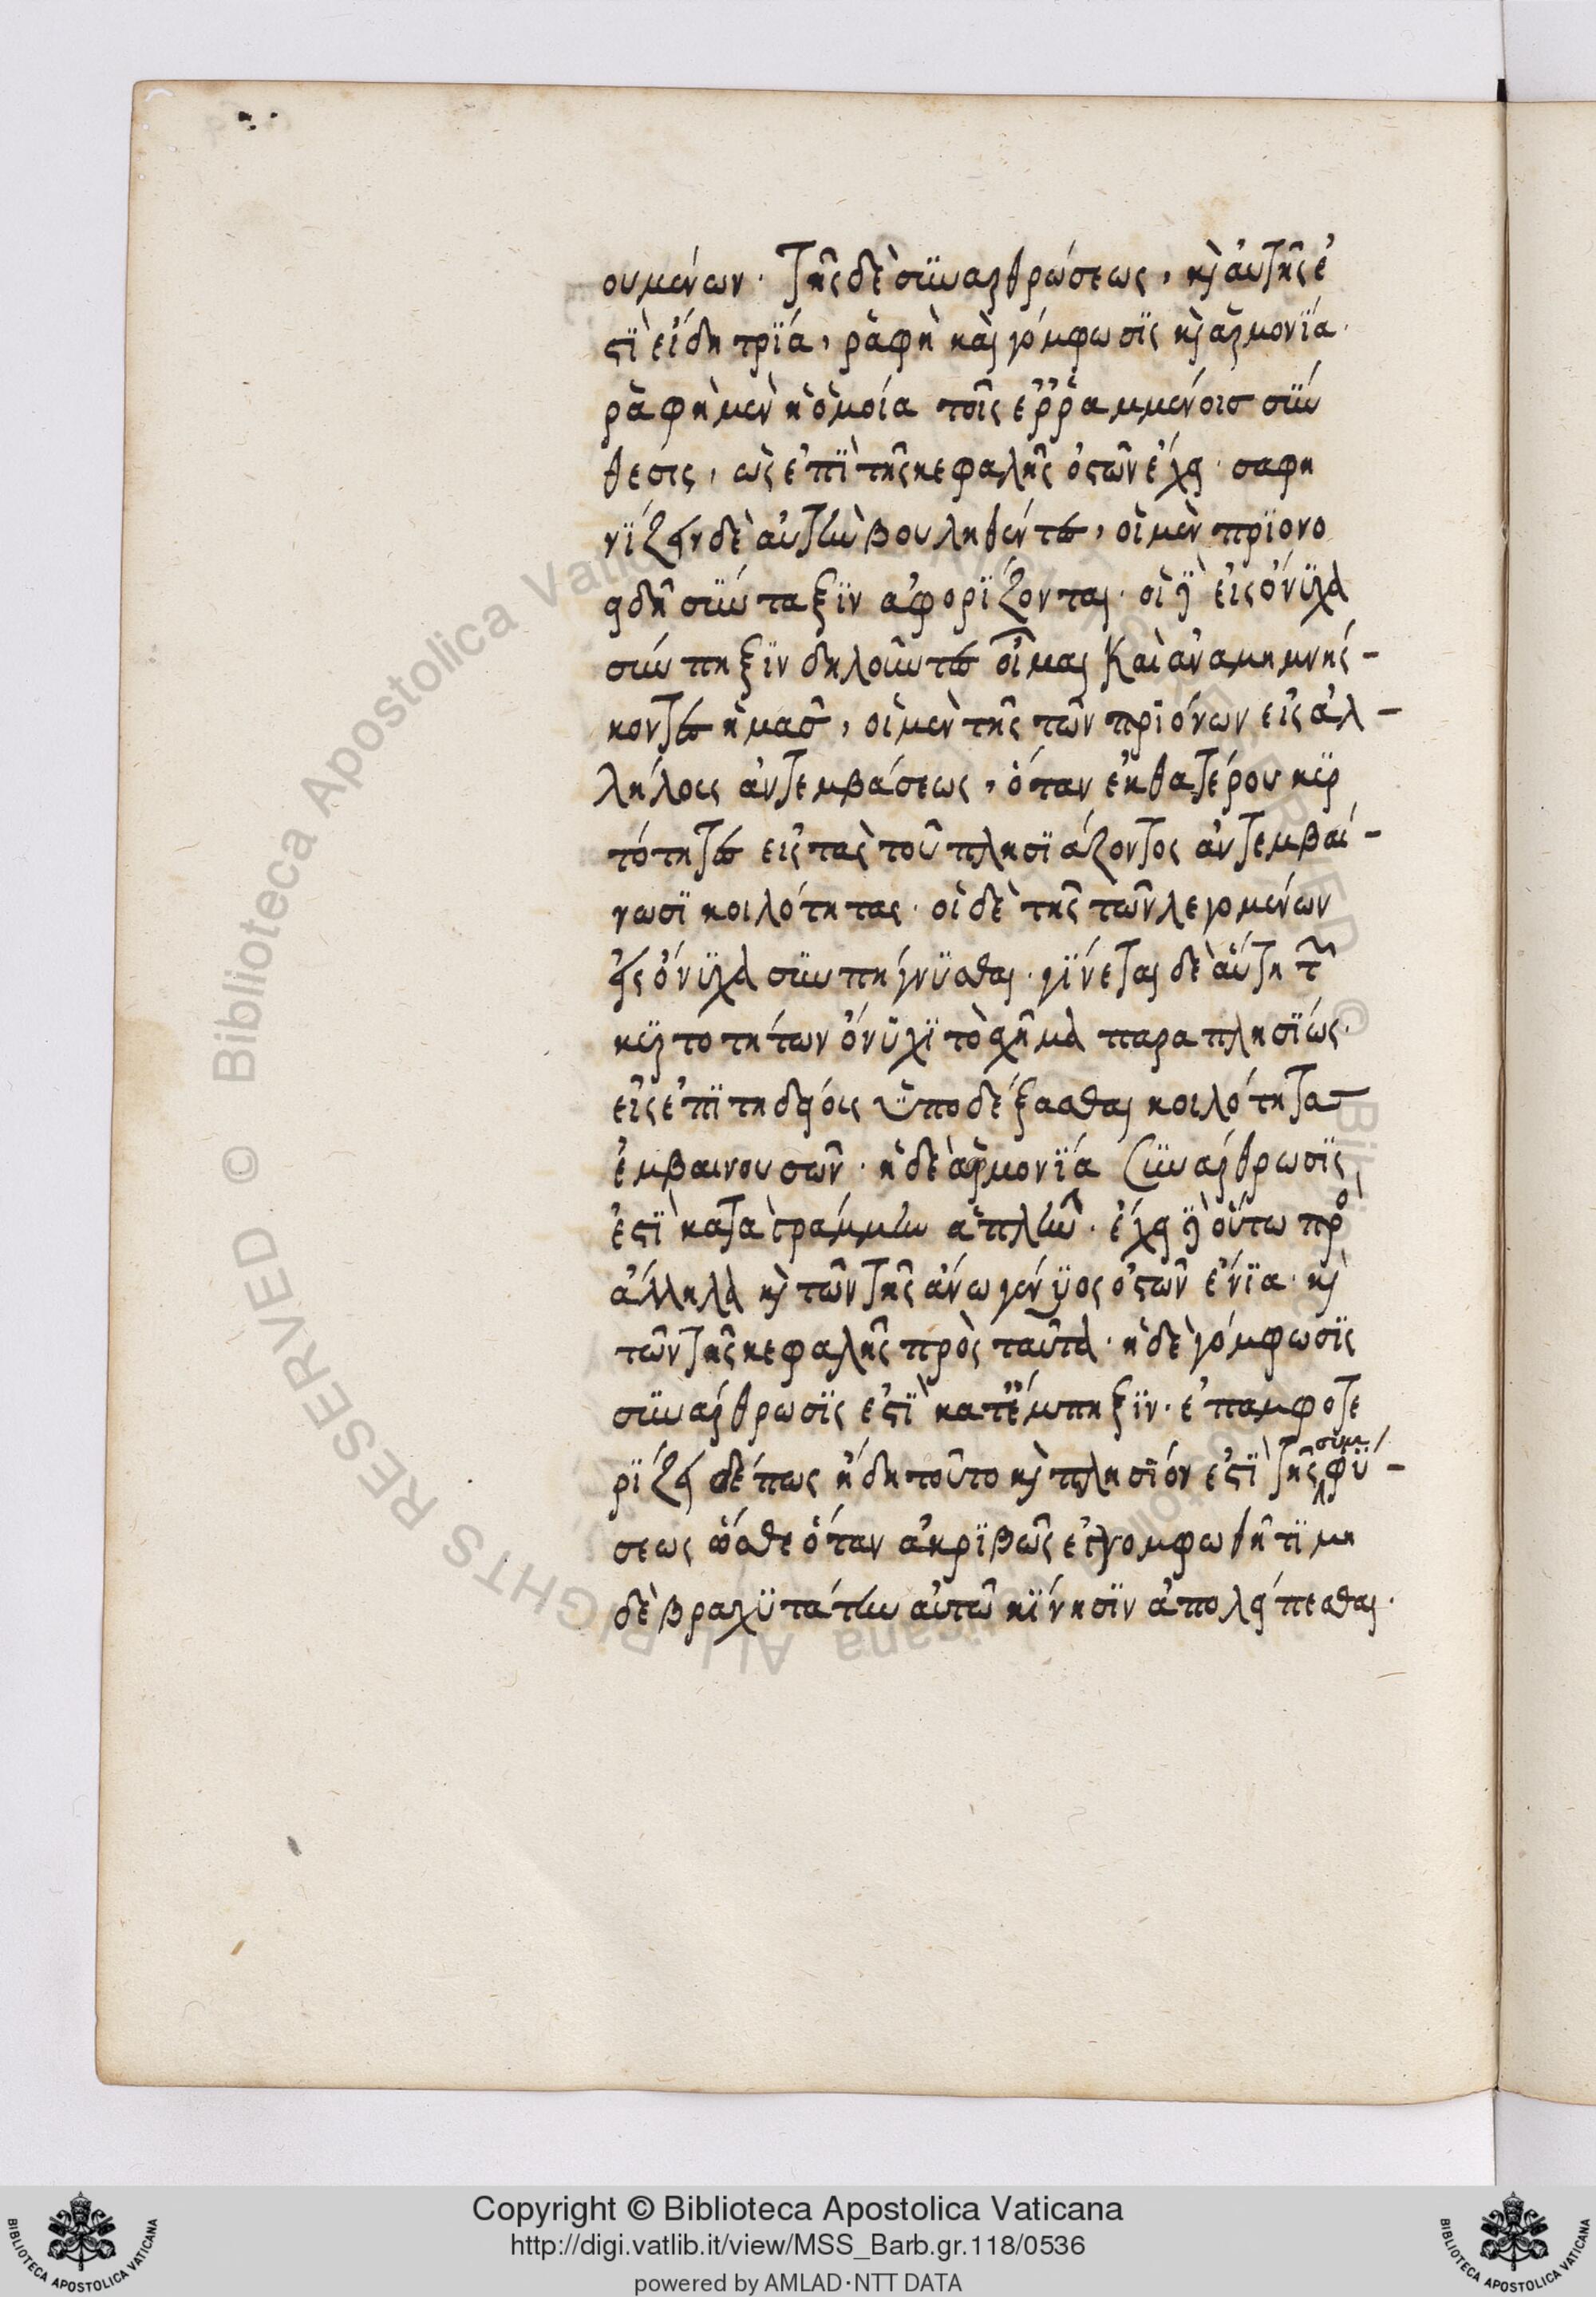 ουμένων. τῆς δὲ συναρθρώσεως, καὶ αὐτῆς ἐ
στὶ εἴδη τρία, ῥαφὴ καὶ γόμφωσις καὶ ἁρμονία.
ῥαφὴ μὲν ἡ ὁμοία τοῖς ἐρραμμένοισ σύν
θεσις, ὡς ἐπὶ τῆς κεφαλῆς ὀστῶν ἔχει. σαφη
νίζειν δὲ αὐτὴν βουληθέντες, οἱ μὲν πριονο
ειδῆ σύνταξιν ἀφορίζονται. οἱ δὲ εἰς ὄνυχα
σύμπηξιν δηλοῦντες οἶμαι καὶ ἀναμημνήσ-
κοντες ἡμᾶσ, οἱ μὲν τῆς τῶν πριόνων εἰς ἀλ-
λήλους ἀντεμβάσεως, ὅταν ἐκθατέρου κυρ
τότητες εἰς τὰς τοῦ πλησιάζοντος ἀντεμβαί-
νωσι κοιλότητας. οἱ δὲ τῆς τῶν λεγομένων
εἰς ὄνυχα συμπήγνυσθαι. γίνεται δὲ αὕτη τῶν
κυρτοτήτων ὄνυχι τὸ σχῆμα παραπλησίως.
εἰς ἐπιτηδείους ὑποδέξασθαι κοιλότητασ
ἐμβαινουσῶν. ἡ δὲ ἁρμονία συνάρθρωσις
ἐστὶ κατὰ γραμμὴν ἁπλῆν. ἔχει δὲ οὕτω πρὸς
ἄλληλα καὶ τῶν τῆς ἄνω γένυος ὀστῶν ἔνια. καὶ
τῶν τῆς κεφαλῆς πρὸς ταῦτα. ἡ δὲ γόμφωσις
συνάρθρωσις ἐστὶ κατ' ἔμπηξιν. ἐπαμφοτε
ρίζει δέ πως ἤδη τοῦτο καὶ πλησίον ἐστὶ τῆς συμφύ-
σεως ὥσθε ὅταν ἀκριβῶς ἐγγομφωθῆ τι μη
δὲ βραχυτάτην αὐτῶν κίνησιν ἀπολείπεσθαι.
© Biblioteca Apostolica Vaticana ALL RIGHTS RESERVED
Copyright © Biblioteca Apostolica Vaticana
http://digi.vatlib.it/view/MSS_Barb.gr.118/0536
powered by AMLAD·NTT DATA
BIBLIOTECA APOSTOLICA VATICANA
BIBLIOTECA APOSTOLICA VATICANA